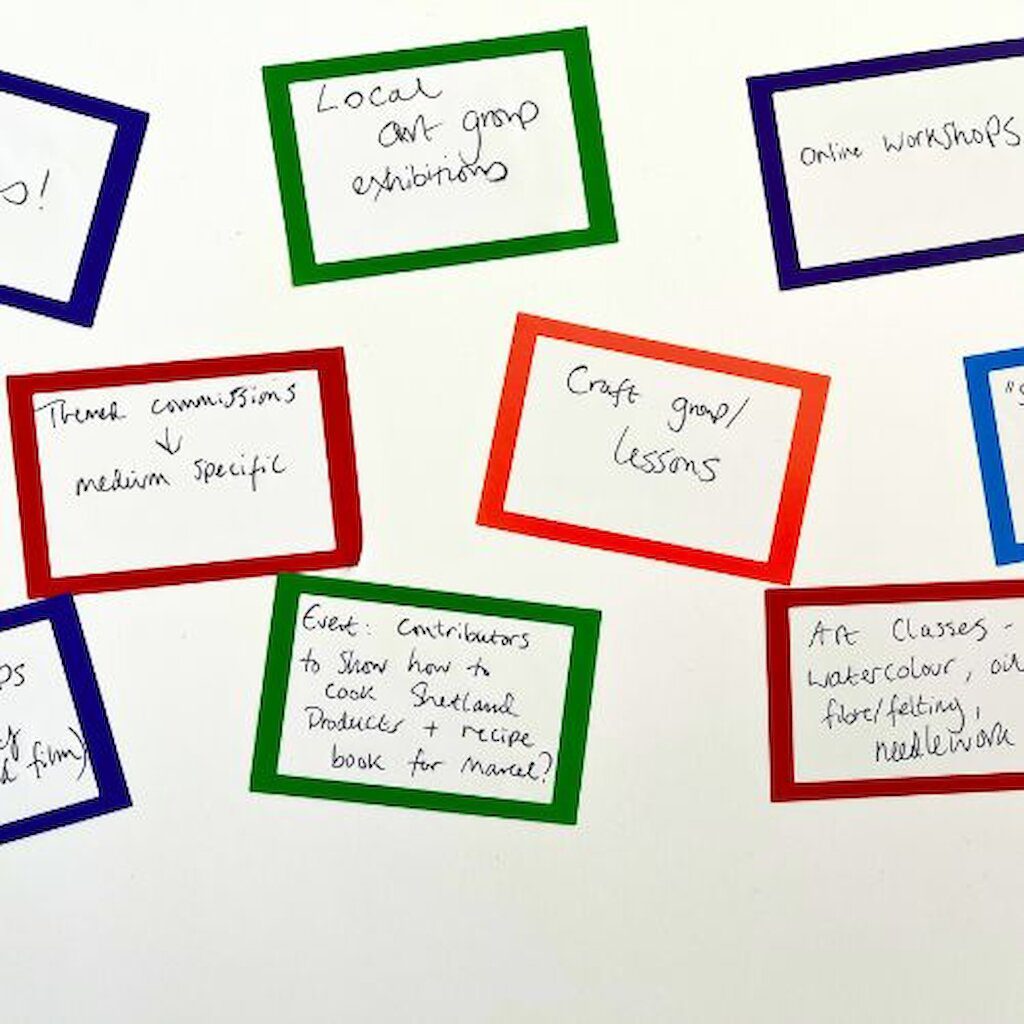 s!
Local
art group
exhibitions
Online workshops
Themed commissions
↓
medium specific
Craft group/
lessons
"S
ps
film)
Event: Contributors
to show how to
cook Shetland
Products + recipe
book for Marcel?
Art Classes -
watercolour, oil
fibre/felting,
needlework